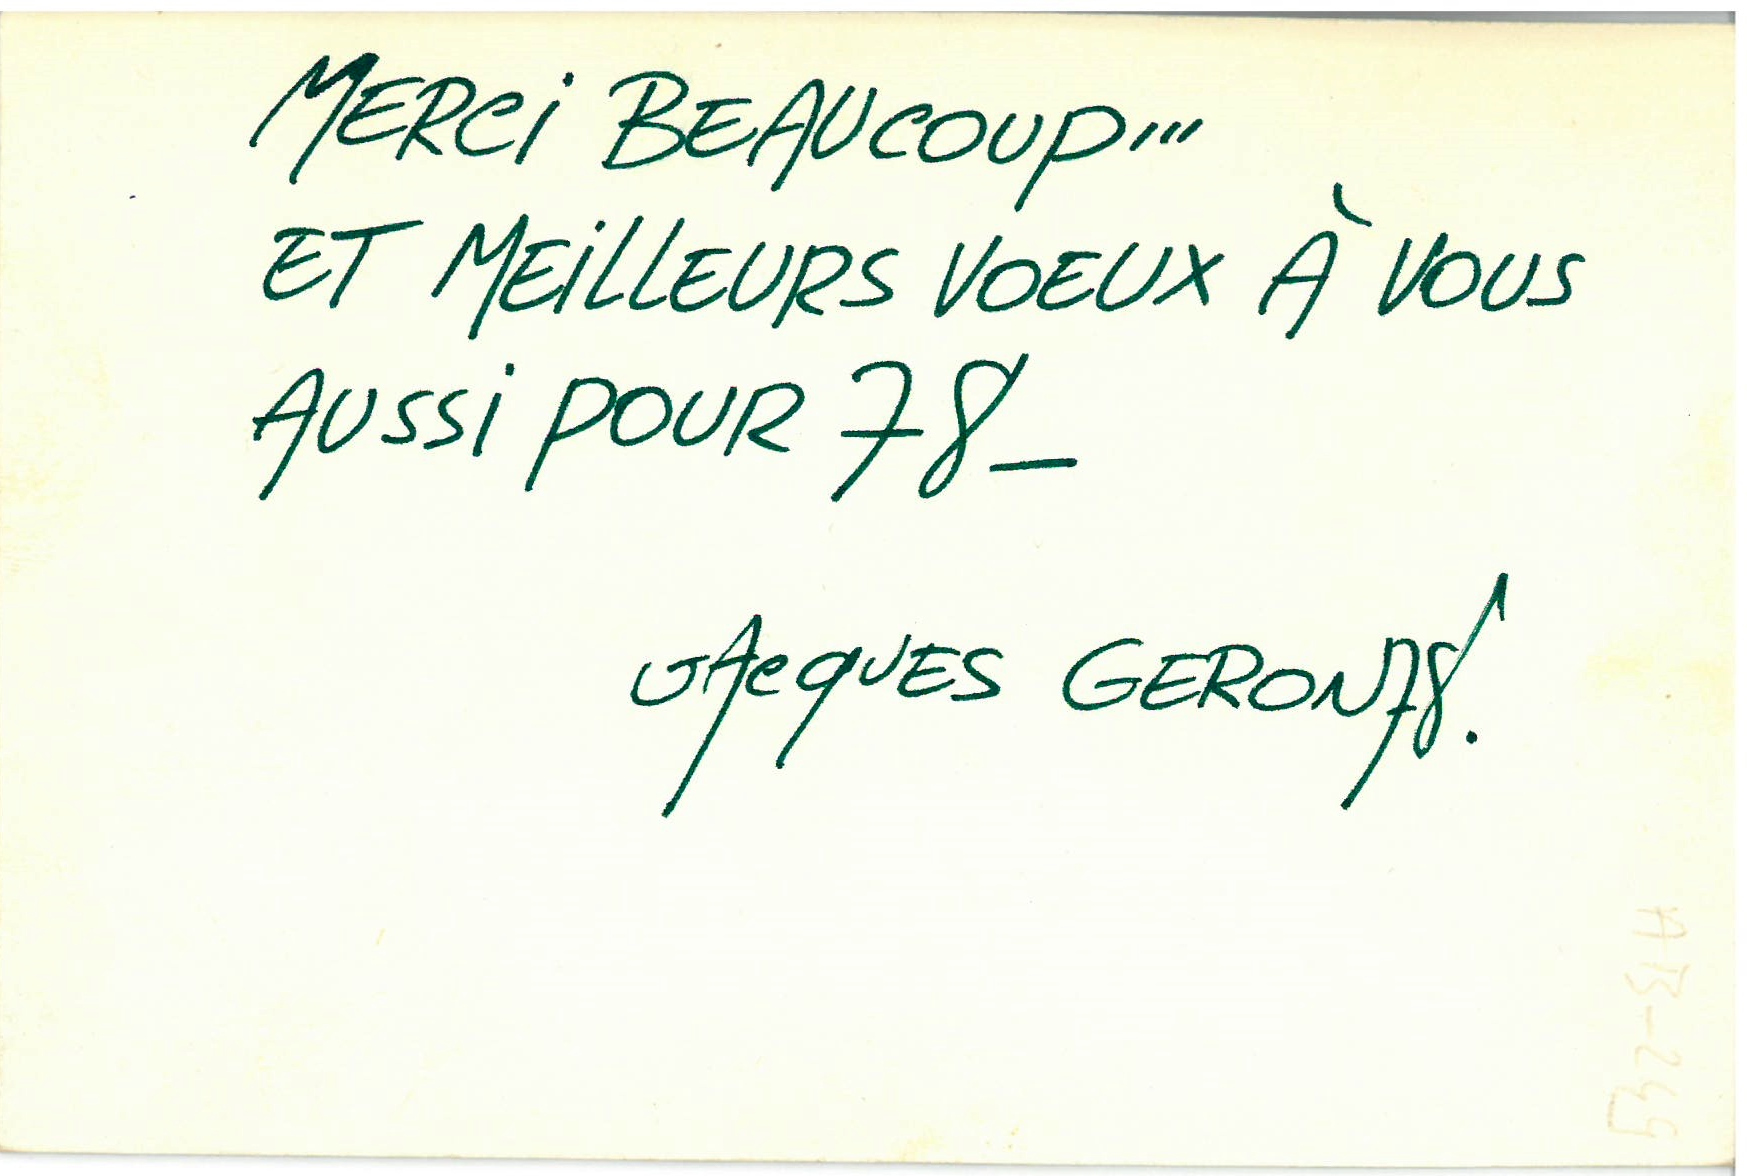 MERCi BEAUCOUP...
ET MEiLLEURS VOEUX À VOUS
AUSSi POUR 78_
JACQUES GERON 78!